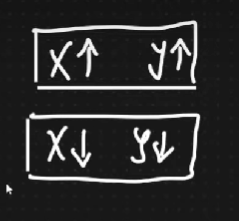 X↑ y↑
X↓ y↓